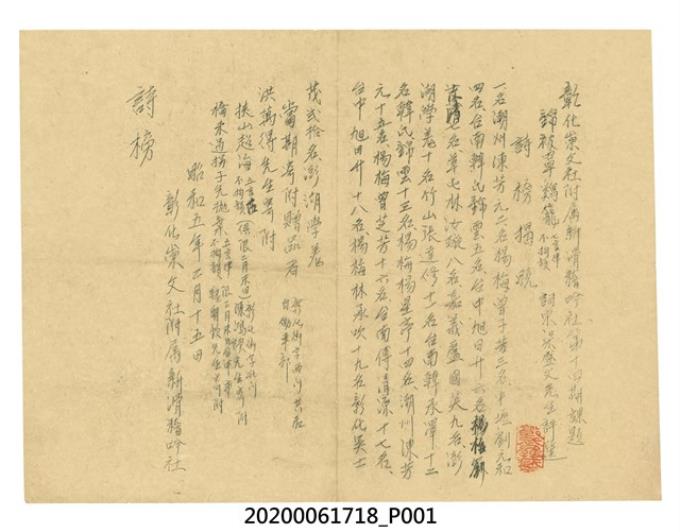 彰化崇文社附屬新滑稽吟社第十四期課題
錦被罩鷄籠 七言律 不拘韻 詞宗 文先生評選
詩榜揭曉
一名潮州陳芳元二名楊梅曾子芳三名中壢劉元和
四名台南韓氏錦雲五名台中旭日廿六名楊梅
七名草屯林汝 八名嘉義盧國英九名澎
湖學卷十名竹山張達修十一名台南韓承澤十二
名韓氏錦雲十三名楊梅楊星亭十四名潮州陳芳
元十五名楊梅曾芝芳十六名台南傅清源十七名
台中旭日廿十八名楊梅林承吹十九名彰化吳士
茂貳拾名澎湖學卷
當期寄附贈品者 彰化街字
洪萬得先生寄附 自働車部
挾山超海 不拘韻 先生寄附
橋木道拐子先拋棄 不拘韻 先生寄附
昭和五年二月十五日
彰化崇文社附屬新滑稽吟社
詩榜
20200061718_P001